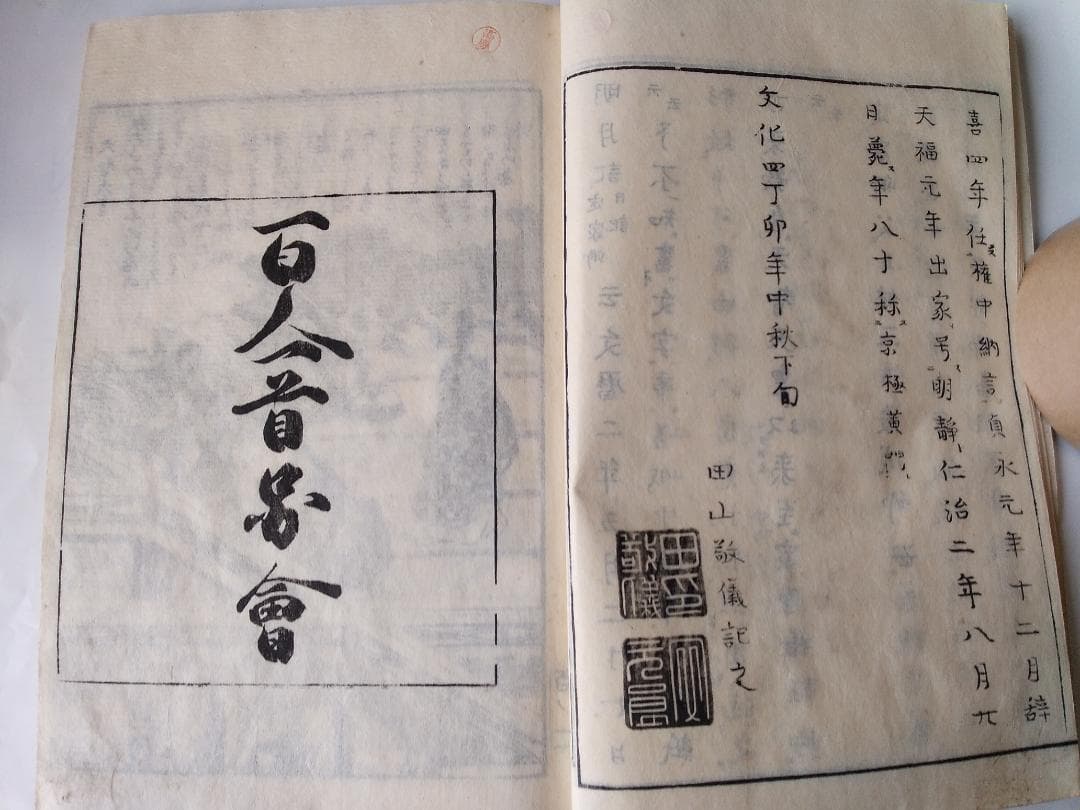 喜四年任権中納言貞永元年十二月辞
天福元年出家号明静仁治二年八月廿
日薨年八十称京極黄門
文化四丁卯年中秋下旬
田山敬儀記之
百人一首図會